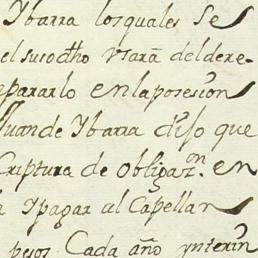 Ybarra los quales Se
el susodho Usará del dere-
pararlo en la posesion
Juan de Ybarra dijo que
Criptura de obligazn. en
a Ypagar al Capellan
pesos Cada año ynterin